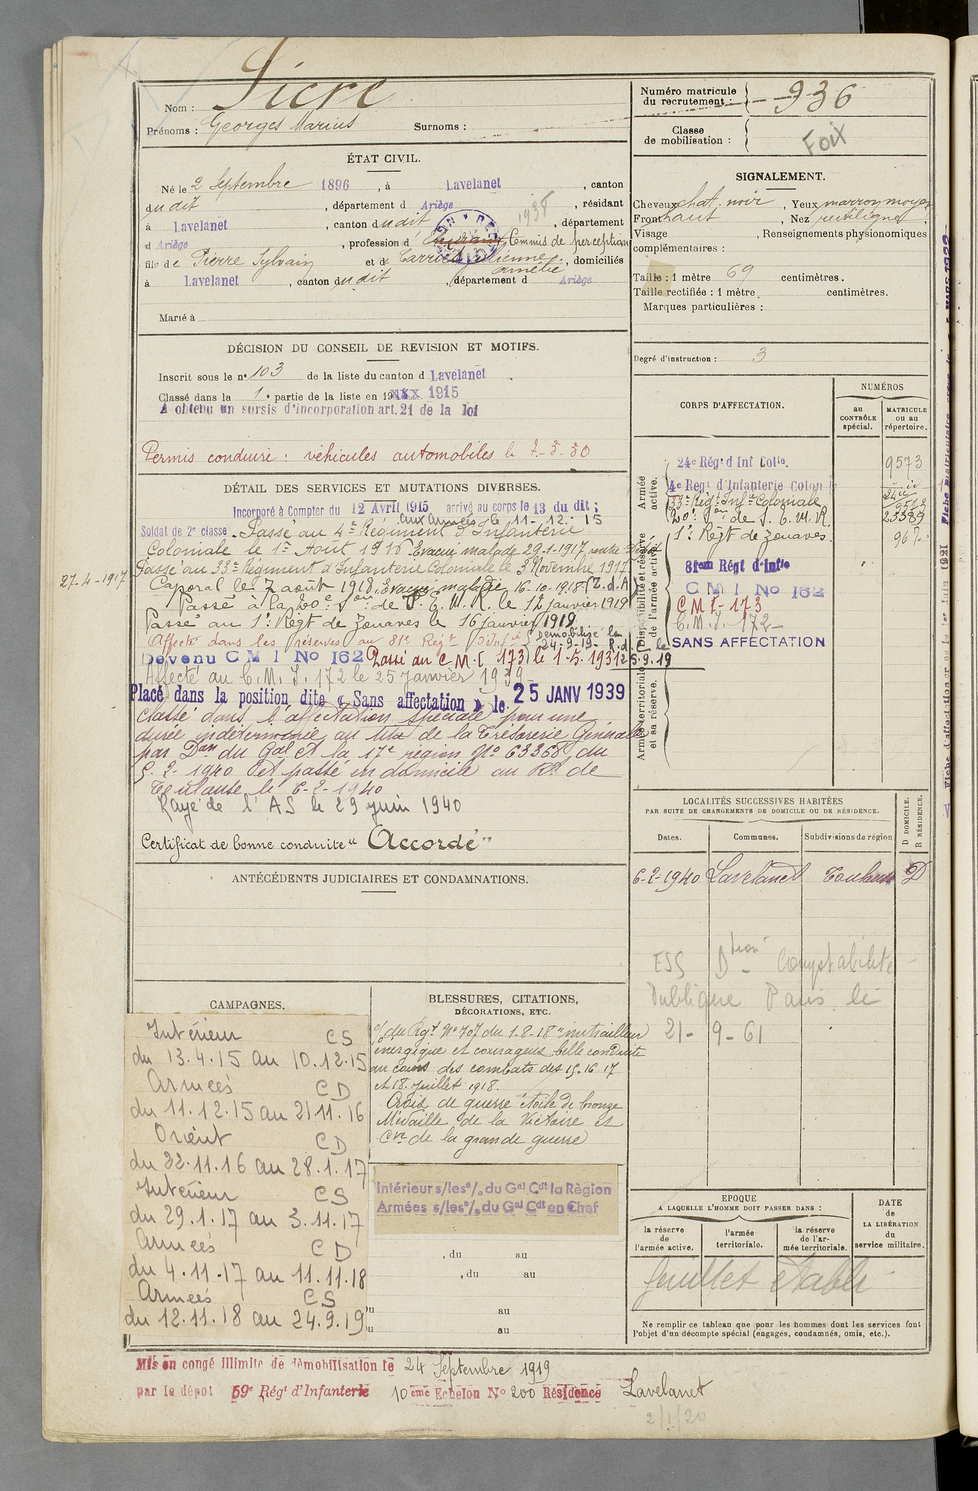 Nom : Sicre
Prénoms : Georges Marius Surnoms :
Numéro matricule du recrutement : 936
Classe de mobilisation :
Foix
ÉTAT CIVIL.
Né le 2 Septembre 1896, à Lavelanet, canton
dudit, département d Ariège, résidant
à Lavelanet, canton dudit, département
1938
d Ariège, profession d Étudiant Commis de perception
fils de Pierre Sylvain et de Carrière Julienne Amélie, domiciliés
à Lavelanet, canton dudit, département d Ariège
Marié à
SIGNALEMENT.
Cheveux chat. noir, Yeux marron moyen
Front haut, Nez rectiligne,
Visage , Renseignements physionomiques
complémentaires :
Taille : 1 mètre 69 centimètres.
Taille rectifiée : 1 mètre centimètres.
Marques particulières :
Degré d'instruction : 3
DÉCISION DU CONSEIL DE REVISION ET MOTIFS.
Inscrit sous le n° 103 de la liste du canton d Lavelanet
Classé dans la 1e partie de la liste en 1915
A obtenu un sursis d'incorporation art. 21 de la loi
Permis conduire : véhicules automobiles le 7-3-30
DÉTAIL DES SERVICES ET MUTATIONS DIVERSES.
Incorporé à Compter du 12 Avril 1915 arrivé au corps le 13 du dit ;
Soldat de 2e classe. Passé au 4e Régiment d'Infanterie
aux Armées le 11-12-15
Coloniale le 1er Août 1916 Evacué malade 29-1-1917 rentré
27-4-1917
Passé au 33e Régiment d'Infanterie Coloniale le 3 Novembre 1917
Caporal le 7 août 1918. Evacué malade 16-10-1918 (Z.d.A)
Passé à la 20e Son de S.C.M.R. le 12 janvier 1919
Passé au 1er Régt de Zouaves le 16 janvier 1919
Affecté dans les réserves au 81e Régt d'Infie
Démobilisé le 24-9-19- R.d.C. le 25.9.19
Devenu C M I No 162 Passé au C.M.I 173 le 1-5-1931
Affecté au C.M.I. 172 le 25 janvier 1939-
Placé dans la position dite « Sans affectation » le 25 JANV 1939
Classé dans l'affectation spéciale pour une
durée indéterminée au titre de la Trésorerie Générale
par Don du Gal Ct la 17e région No 63368 du
5-2-1940 et passé en domicile au Rt de
Toulouse le 6-2-1940
Rayé de l'AS le 29 juin 1940
Certificat de bonne conduite "Accordé"
CORPS D'AFFECTATION.
NUMÉROS
au CONTRÔLE spécial.
MATRICULE ou au répertoire.
Armée active.
Disponibilité et réserve de l'armée active.
Armée territoriale et sa réserve.
24e Régt d'Inf Colle. 9573
4e Regt d'Infanterie Colon
33e Régt Infie Coloniale
20e Son de S.C.M.R. 23389
1er Régt de Zouaves.
81em Régt d'Infie
C M I No 162
C M I - 173
C.M.I. 172-
SANS AFFECTATION
ANTÉCÉDENTS JUDICIAIRES ET CONDAMNATIONS.
LOCALITÉS SUCCESSIVES HABITÉES
PAR SUITE DE CHANGEMENTS DE DOMICILE OU DE RÉSIDENCE.
Dates. Communes. Subdivisions de région
D DOMICILE. R RÉSIDENCE.
6-2-1940 Lavelanet Toulouse D
ESS Dtion Comptabilité
Publique Paris le
21-9-61
CAMPAGNES.
Intérieur CS
du 13.4.15 au 10.12.15
Armées CD
du 11.12.15 au 21.11.16
Orient CD
du 22.11.16 au 28.1.17
Intérieur CS
du 29.1.17 au 3.11.17
Armées CD
du 4.11.17 au 11.11.18
Armées CS
du 12.11.18 au 24.9.19
BLESSURES, CITATIONS, DÉCORATIONS, ETC.
O/ du Régt No 707 du 1.8.18 "mitrailleur
énergique et courageux belle conduite
au cours des combats des 15.16.17
et 18 juillet 1918.
Croix de guerre étoile de bronze
Médaille de la Victoire et
Cve de la grande guerre
Intérieur s/les o/ du Gal Cdt la Région
Armées s/les o/ du Gal Cdt en Chef
, du au
, du au
du au
du au
EPOQUE
A LAQUELLE L'HOMME DOIT PASSER DANS :
la réserve de l'armée active.
l'armée territoriale.
la réserve de l'armée territoriale.
DATE de LA LIBÉRATION du service militaire.
feuillet établi
Ne remplir ce tableau que pour les hommes dont les services font
l'objet d'un décompte spécial (engagés, condamnés, omis, etc.).
Mis en congé illimité de démobilisation le 24 Septembre 1919
par le dépôt 59e Régt d'Infanterie 10eme Echelon No 200 Résidence Lavelanet
2/1/20